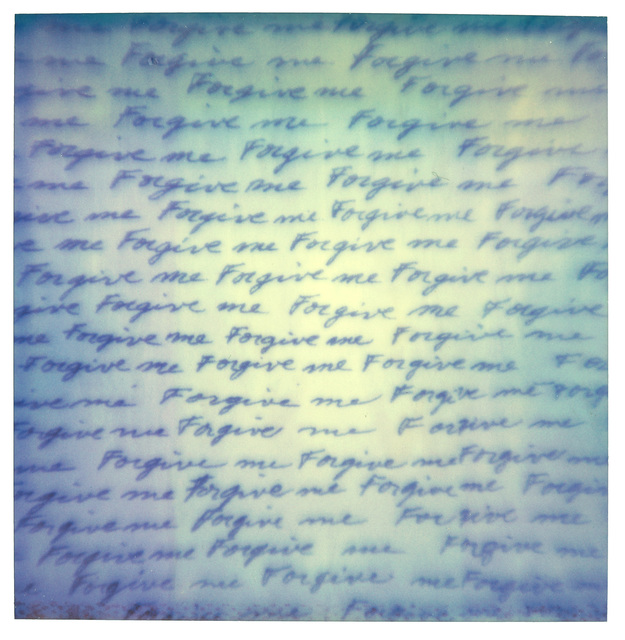 Forgive me Forgive me Forgive
me Forgive me Forgive me
give me Forgive me Forgive me
me Forgive me Forgive me
Forgive me Forgive me Forgive
me Forgive me Forgive me For
give me Forgive me Forgive me Forgive m
e me Forgive me Forgive me Forgive
Forgive me Forgive me Forgive me Fo
give Forgive me Forgive me Forgive
me Forgive me Forgive me Forgive me
Forgive me Forgive me Forgive me For
give me Forgive me Forgive me Forg
Forgive me Forgive me Forgive me
me Forgive me Forgive me Forgive me
Forgive me Forgive me Forgive me Forgive
Forgive me Forgive me Forgive me
Forgive me Forgive me Forgive me
e Forgive me Forgive me Forgive me
me Forgive me